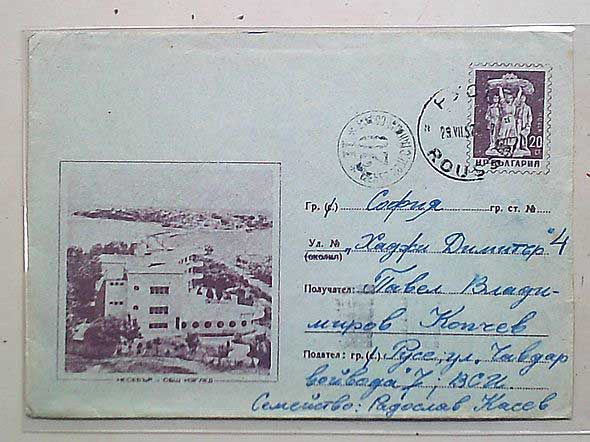 РУСЕ
29.VII.57
ROUSSE
20
20 ст.
НР БЪЛГАРИЯ
Гр. (с.) София гр. ст. №
Ул. № „Хаджи Димитър“ 4
(околия)
Получател: Павел Влади-
миров Копчев
Подател: гр. (с.) Русе, ул. „Чавдар
войвода“ 7, ВСИ
Семейство: Радослав Касев
НЕСЕБЪР - ОБЩ ИЗГЛЕД